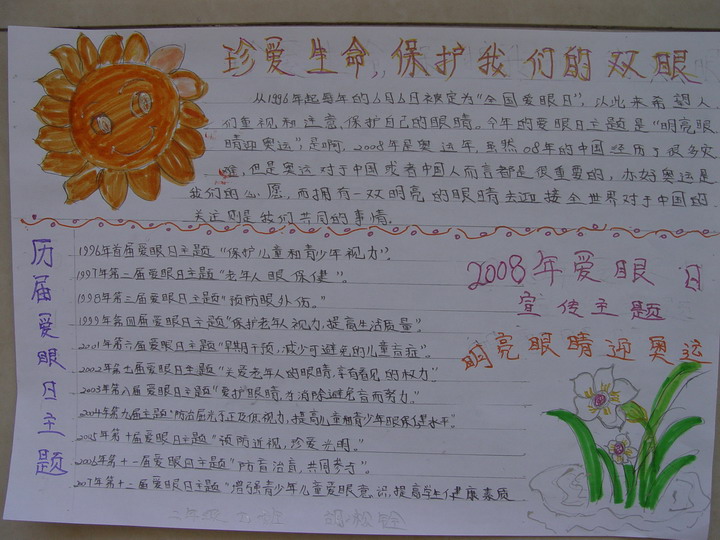 珍爱生命，保护我们的双眼
从1996年起每年的6月6日被定为“全国爱眼日”，以此来希望人
们重视和注意，保护自己的眼睛。今年的爱眼日主题是“明亮眼
睛迎奥运”；是啊，2008年是奥运年，虽然08年的中国经历了很多灾
难，但是奥运对于中国或者中国人而言都是很重要的，办好奥运是
我们的心愿，而拥有一双明亮的眼睛去迎接全世界对于中国的
关注则是我们共同的事情.
历届爱眼日主题
1996年首届爱眼日主题“保护儿童和青少年视力”。
1997年第二届爱眼日主题“老年人眼保健”。
1998年第三届爱眼日主题“预防眼外伤。”
1999年第四届爱眼日主题“保护老年人视力，提高生活质量”。
2001年第六届爱眼日主题“早期干预，减少可避免的儿童盲症”。
2002年第七届爱眼日主题“关爱老年人的眼睛，享有看见的权力”。
2003年第八届爱眼日主题“爱护眼睛，为消除避免盲而努力。”
2004年第九届主题“防治屈光不正及低视力，提高儿童和青少年眼保健水平”
2005年第十届爱眼日主题“预防近视，珍爱光明。”
2006年第十一届爱眼日主题“防盲治盲，共同参与”。
2007年第十二届爱眼日主题“增强青少年儿童爱眼意识，提高学生健康素质
2008年爱眼日
宣传主题
明亮眼睛迎奥运